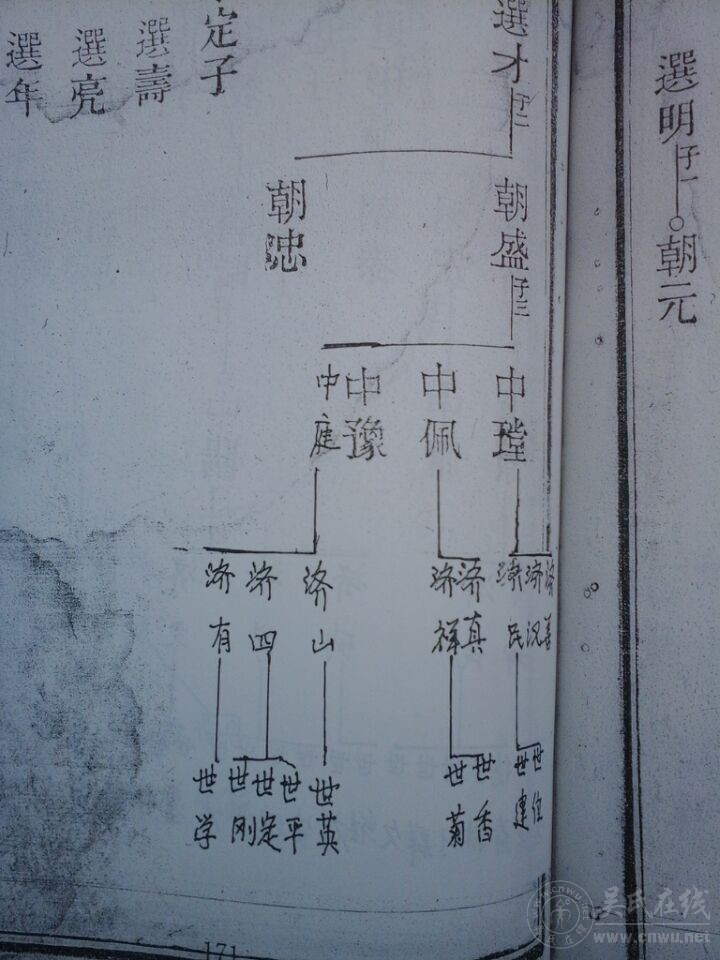 選明子一
朝元
選才子二
定子
選壽
選亮
選年
朝盛子三
朝忠
中瑝
中佩
中豫
中庭
济善
济汉
济民
济真
济祥
济山
济四
济有
世住
世建
世香
世菊
世英
世平
世定
世刚
世学
171
吴氏在线
www.cnwu.net